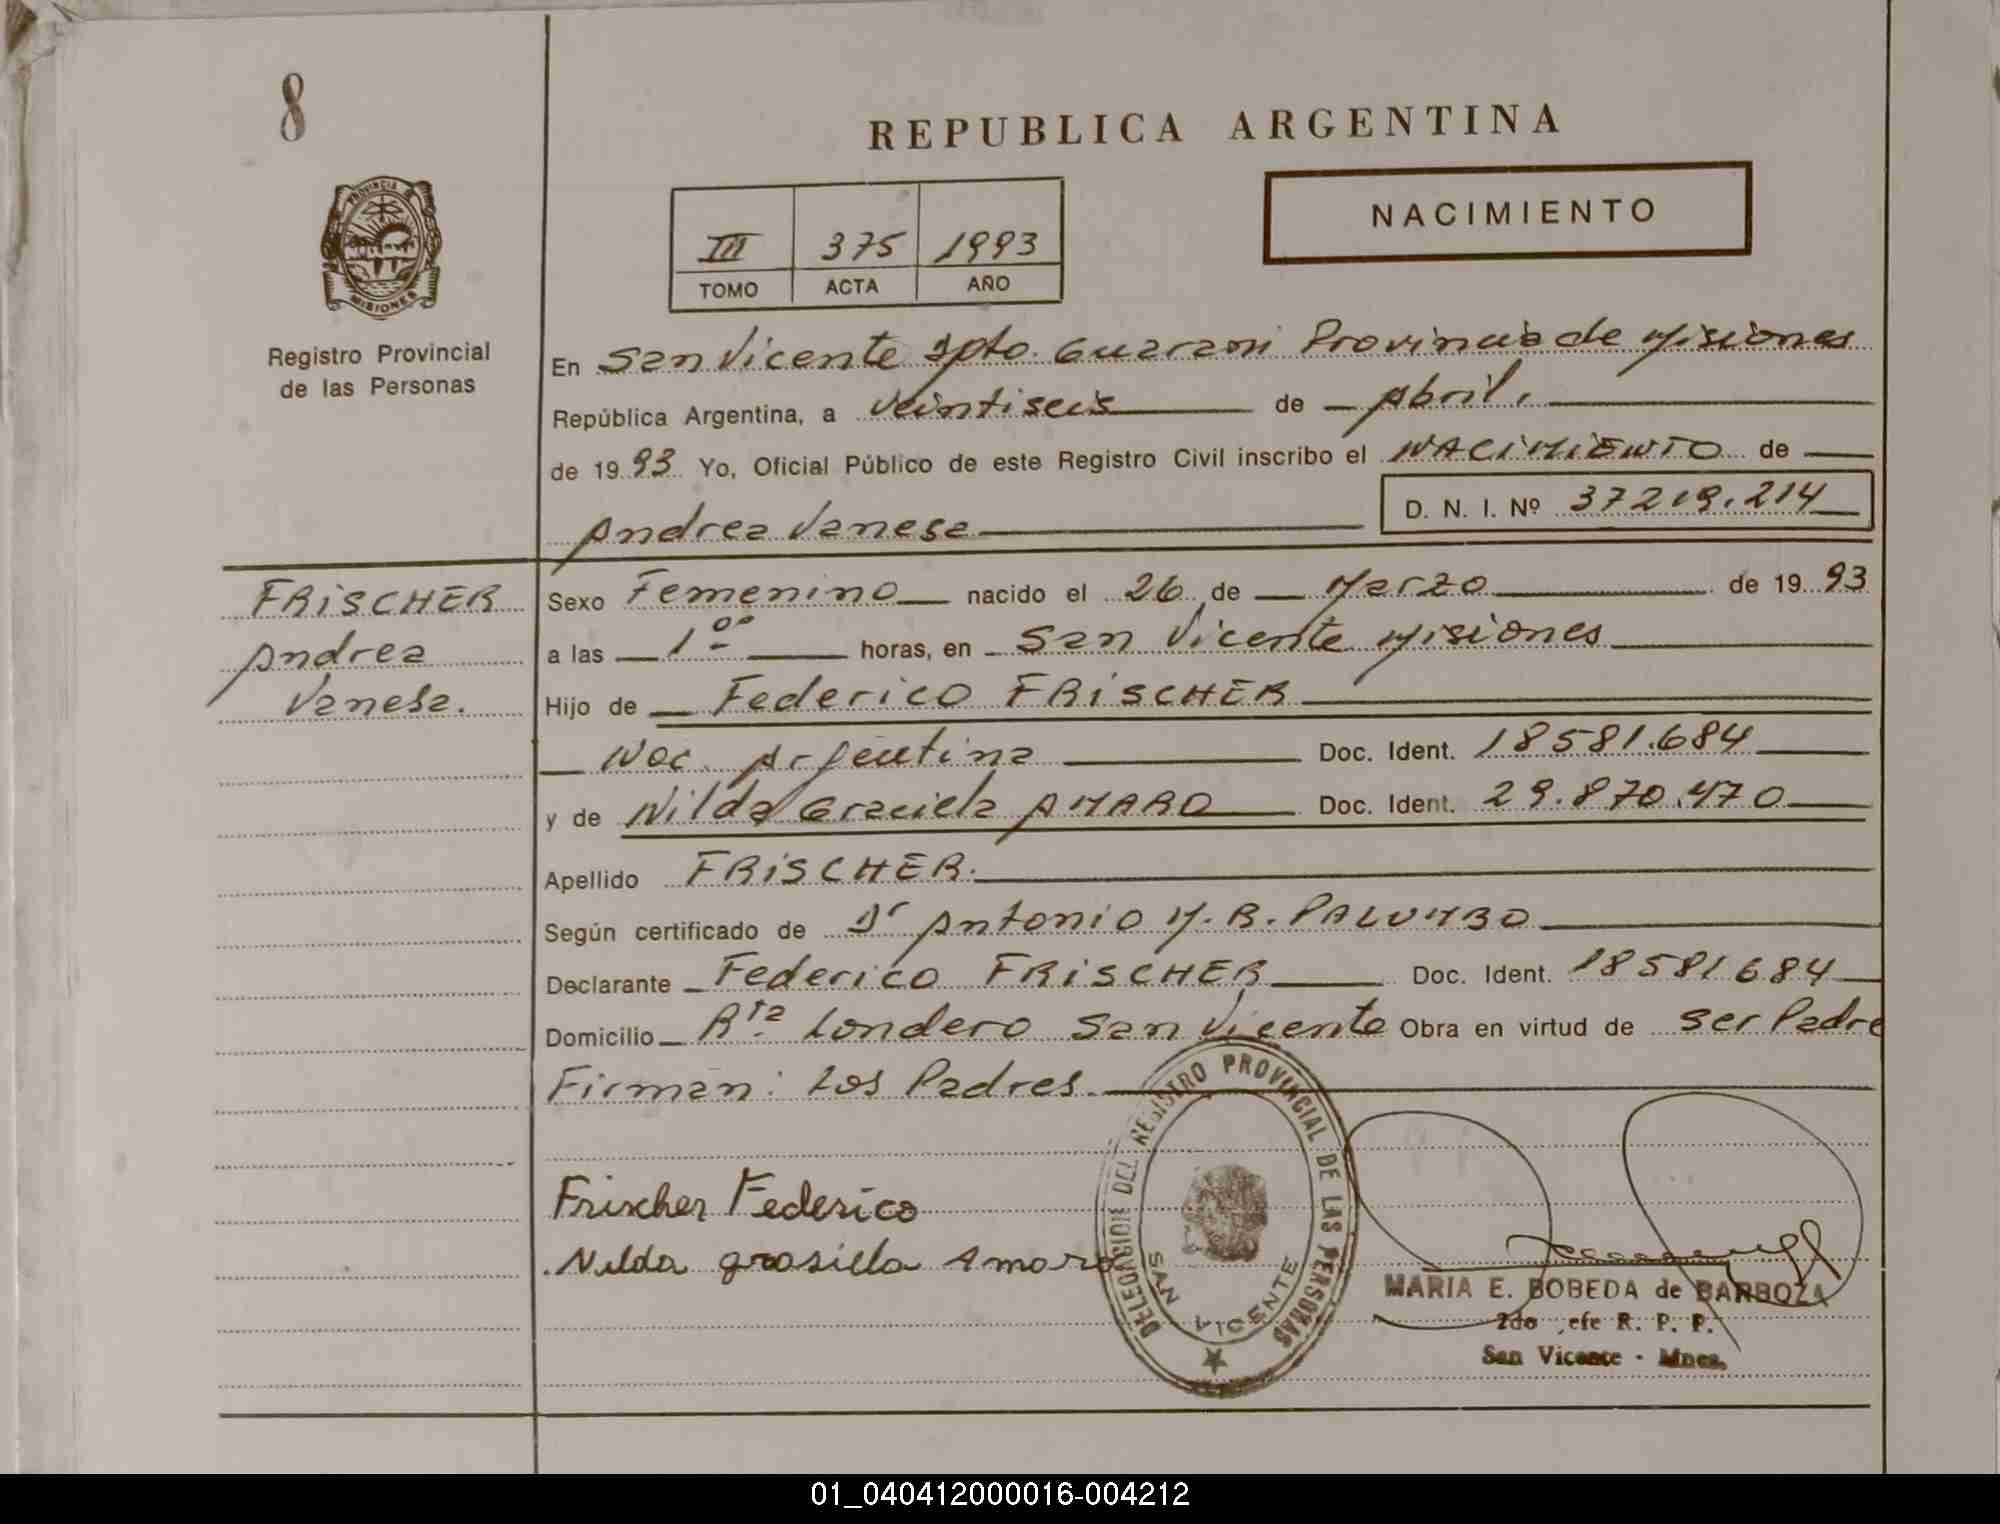 8
REPUBLICA ARGENTINA
NACIMIENTO
III 375 1993
TOMO ACTA AÑO
PROVINCIA DE
MISIONES
Registro Provincial
de las Personas
En San Vicente Dpto. Guarani Provincia de Misiones
República Argentina, a veintiseis de Abril.
de 1993 Yo, Oficial Público de este Registro Civil inscribo el NACIMIENTO de
Andrea Vanesa D. N. I. Nº 37219.214
FRISCHER
Andrea
Vanesa.
Sexo Femenino nacido el 26 de Marzo de 1993
a las 1⁰⁰ horas, en San Vicente Misiones
Hijo de Federico FRISCHER
Nac. Argentina Doc. Ident. 18581.684
y de Nilda Graciela AMARO Doc. Ident. 29.870.470
Apellido FRISCHER.
Según certificado de Dr Antonio M. R. PALUMBO
Declarante Federico FRISCHER Doc. Ident. 18581684
Domicilio Rta Londero San Vicente Obra en virtud de ser Padre
Firman: Los Padres.
Frischer Federico
Nilda grasiela Amaro
DELEGACION DEL REGISTRO PROVINCIAL DE LAS PERSONAS
SAN VICENTE
MARIA E. BOBEDA de BARBOZA
2do efe R. P. P.
San Vicente - Mnes.
01_040412000016-004212